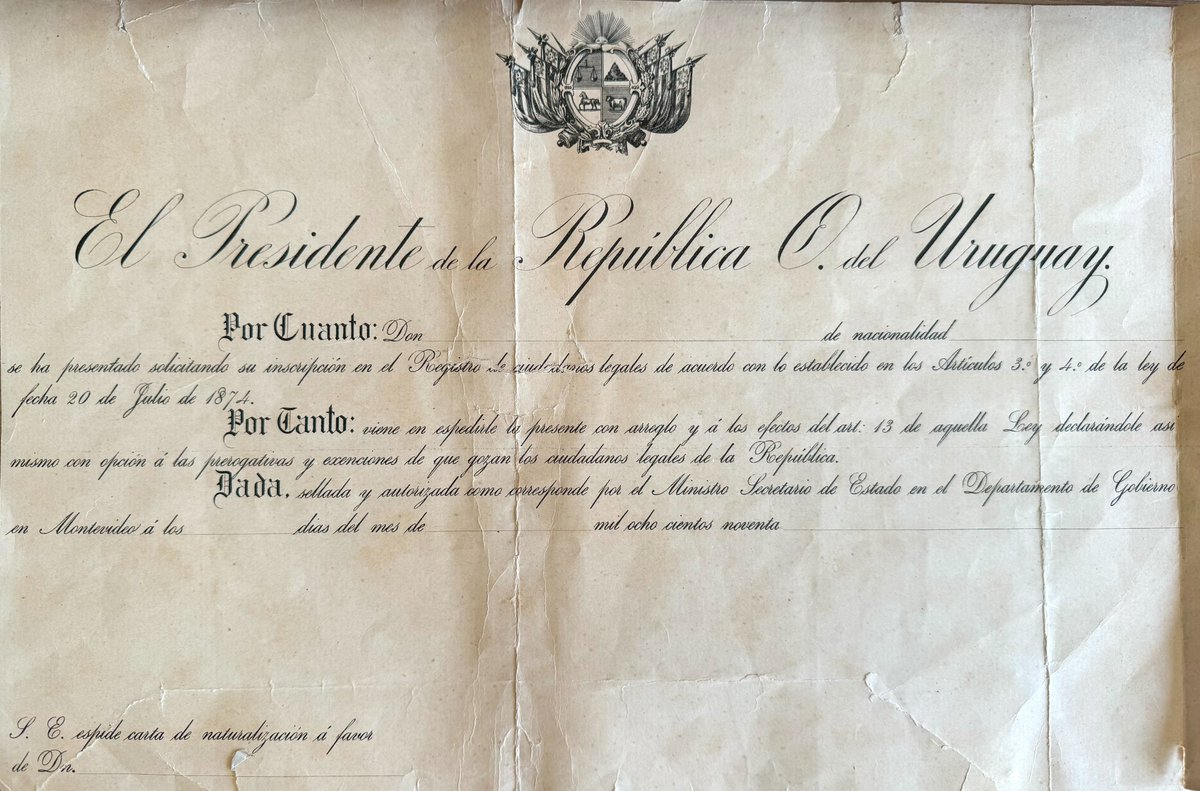 El Presidente de la República O. del Uruguay.
Por Cuanto: Don de nacionalidad
se ha presentado solicitando su inscripción en el Registro de ciudadanos legales de acuerdo con lo establecido en los Artículos 3.º y 4.º de la ley de
fecha 20 de Julio de 1874.
Por Tanto: viene en espedirle la presente con arreglo y á los efectos del art: 13 de aquella Ley declarándole asi
mismo con opción á las prerogativas y exenciones de que gozan los ciudadanos legales de la República.
Dada, sellada y autorizada como corresponde por el Ministro Secretario de Estado en el Departamento de Gobierno
en Montevideo á los dias del mes de mil ocho cientos noventa
S. E. espide carta de naturalización á favor
de Dn.